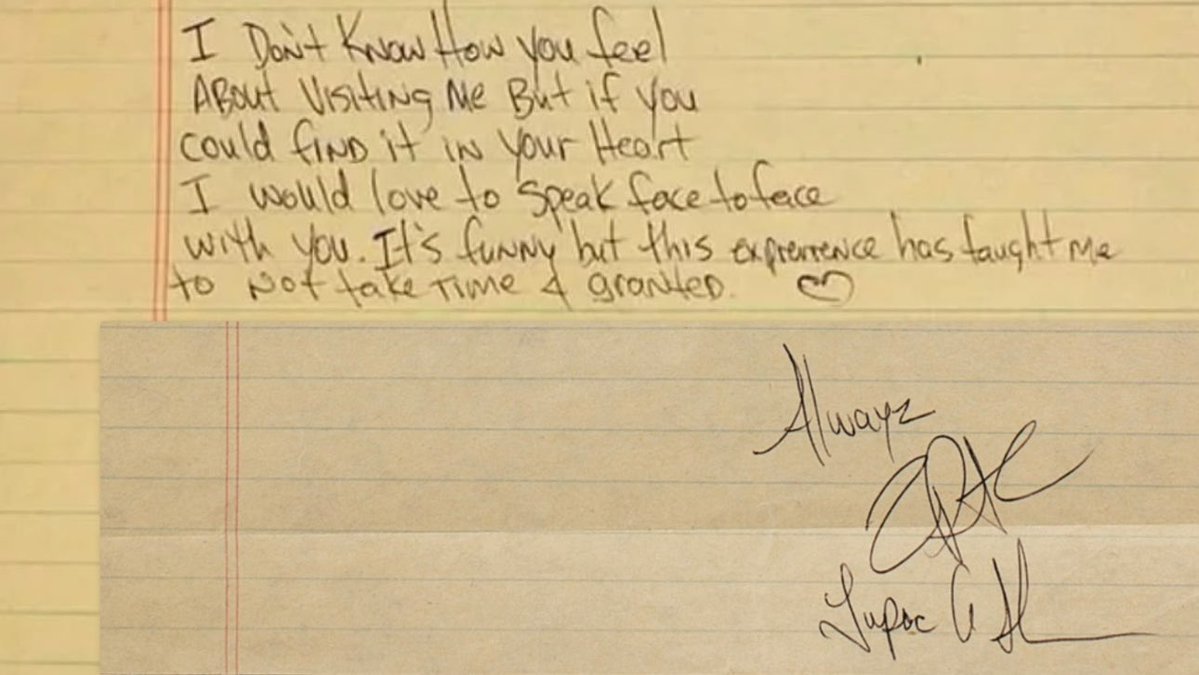 I Don't Know How you feel
ABout Visiting Me But if you
could find it in your Heart
I would love to speak face to face
with you. It's funny but this exprerrence has taught Me
to Not take Time 4 granted. ♡
Alwayz
Tupac A Sh